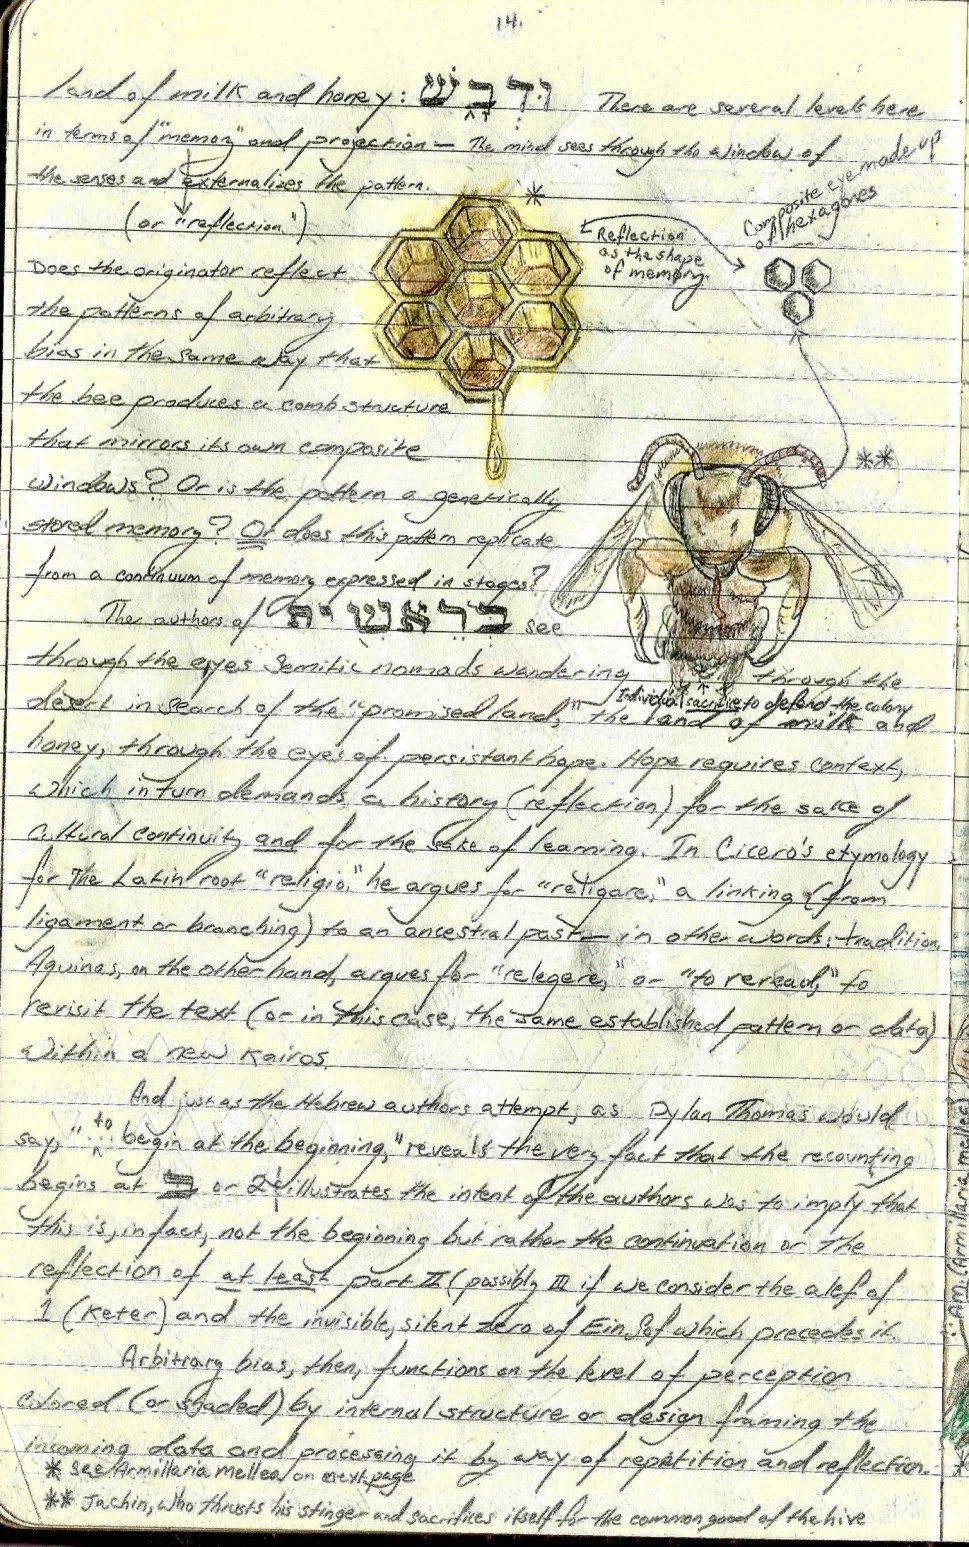 14.
land of milk and honey: וּדְבָשׁ There are several levels here
in terms of "memory" and projection — The mind sees through the window of
the senses and externalizes the pattern.
(or "reflection")
*
Reflection
as the shape
of memory.
Composite eye made up
of hexagones
Does the originator reflect
the patterns of arbitrary
bias in the same way that
the bee produces a comb structure
that mirrors its own composite
windows? Or is the pattern a genetically
stored memory? Or does this pattern replicate
from a continuum of memory expressed in stages?
**
The authors of בראשית see
through the eyes Semitic nomads wandering through the
Individual sacrifice to defend the colony
desert in search of the "promised land," the land of milk and
honey, through the eyes of persistant hope. Hope requires context,
which in turn demands a history (reflection) for the sake of
cultural continuity and for the sake of learning. In Cicero's etymology
for the Latin root "religio," he argues for "religare," a linking (from
ligament or branching) to an ancestral past — in other words: tradition.
Aquinas, on the other hand, argues for "relegere," or "to reread," to
revisit the text (or in this case, the same established pattern or data)
within a new Kairos.
And just as the Hebrew authors attempt, as Dylan Thomas would
say, "to begin at the beginning," reveals the very fact that the recounting
begins at ב or 2 illustrates the intent of the authors was to imply that
this is, in fact, not the beginning but rather the continuation or the
reflection of at least part II (possibly III if we consider the alef of
1 (Keter) and the invisible, silent zero of Ein Sof which precedes it.
Arbitrary bias, then, functions on the level of perception
colored (or shaded) by internal structure or design framing the
incoming data and processing it by way of repetition and reflection.
* See Armillaria mellea on next page
** Jachin, who thrusts his stinger and sacrifices itself for the common good of the hive
AM. (Armillaria mellea)